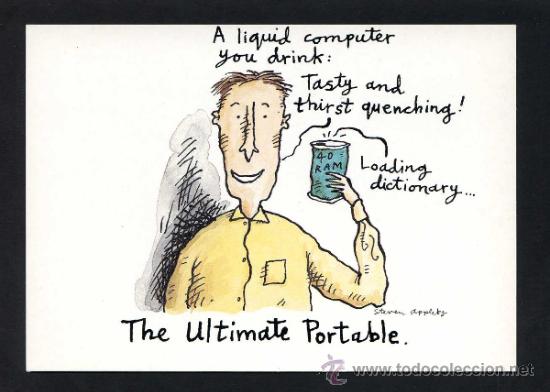 A liquid computer
you drink:
Tasty and
thirst quenching!
40
RAM
Loading
dictionary...
Steven Appleby
The Ultimate Portable.
www.todocoleccion.net